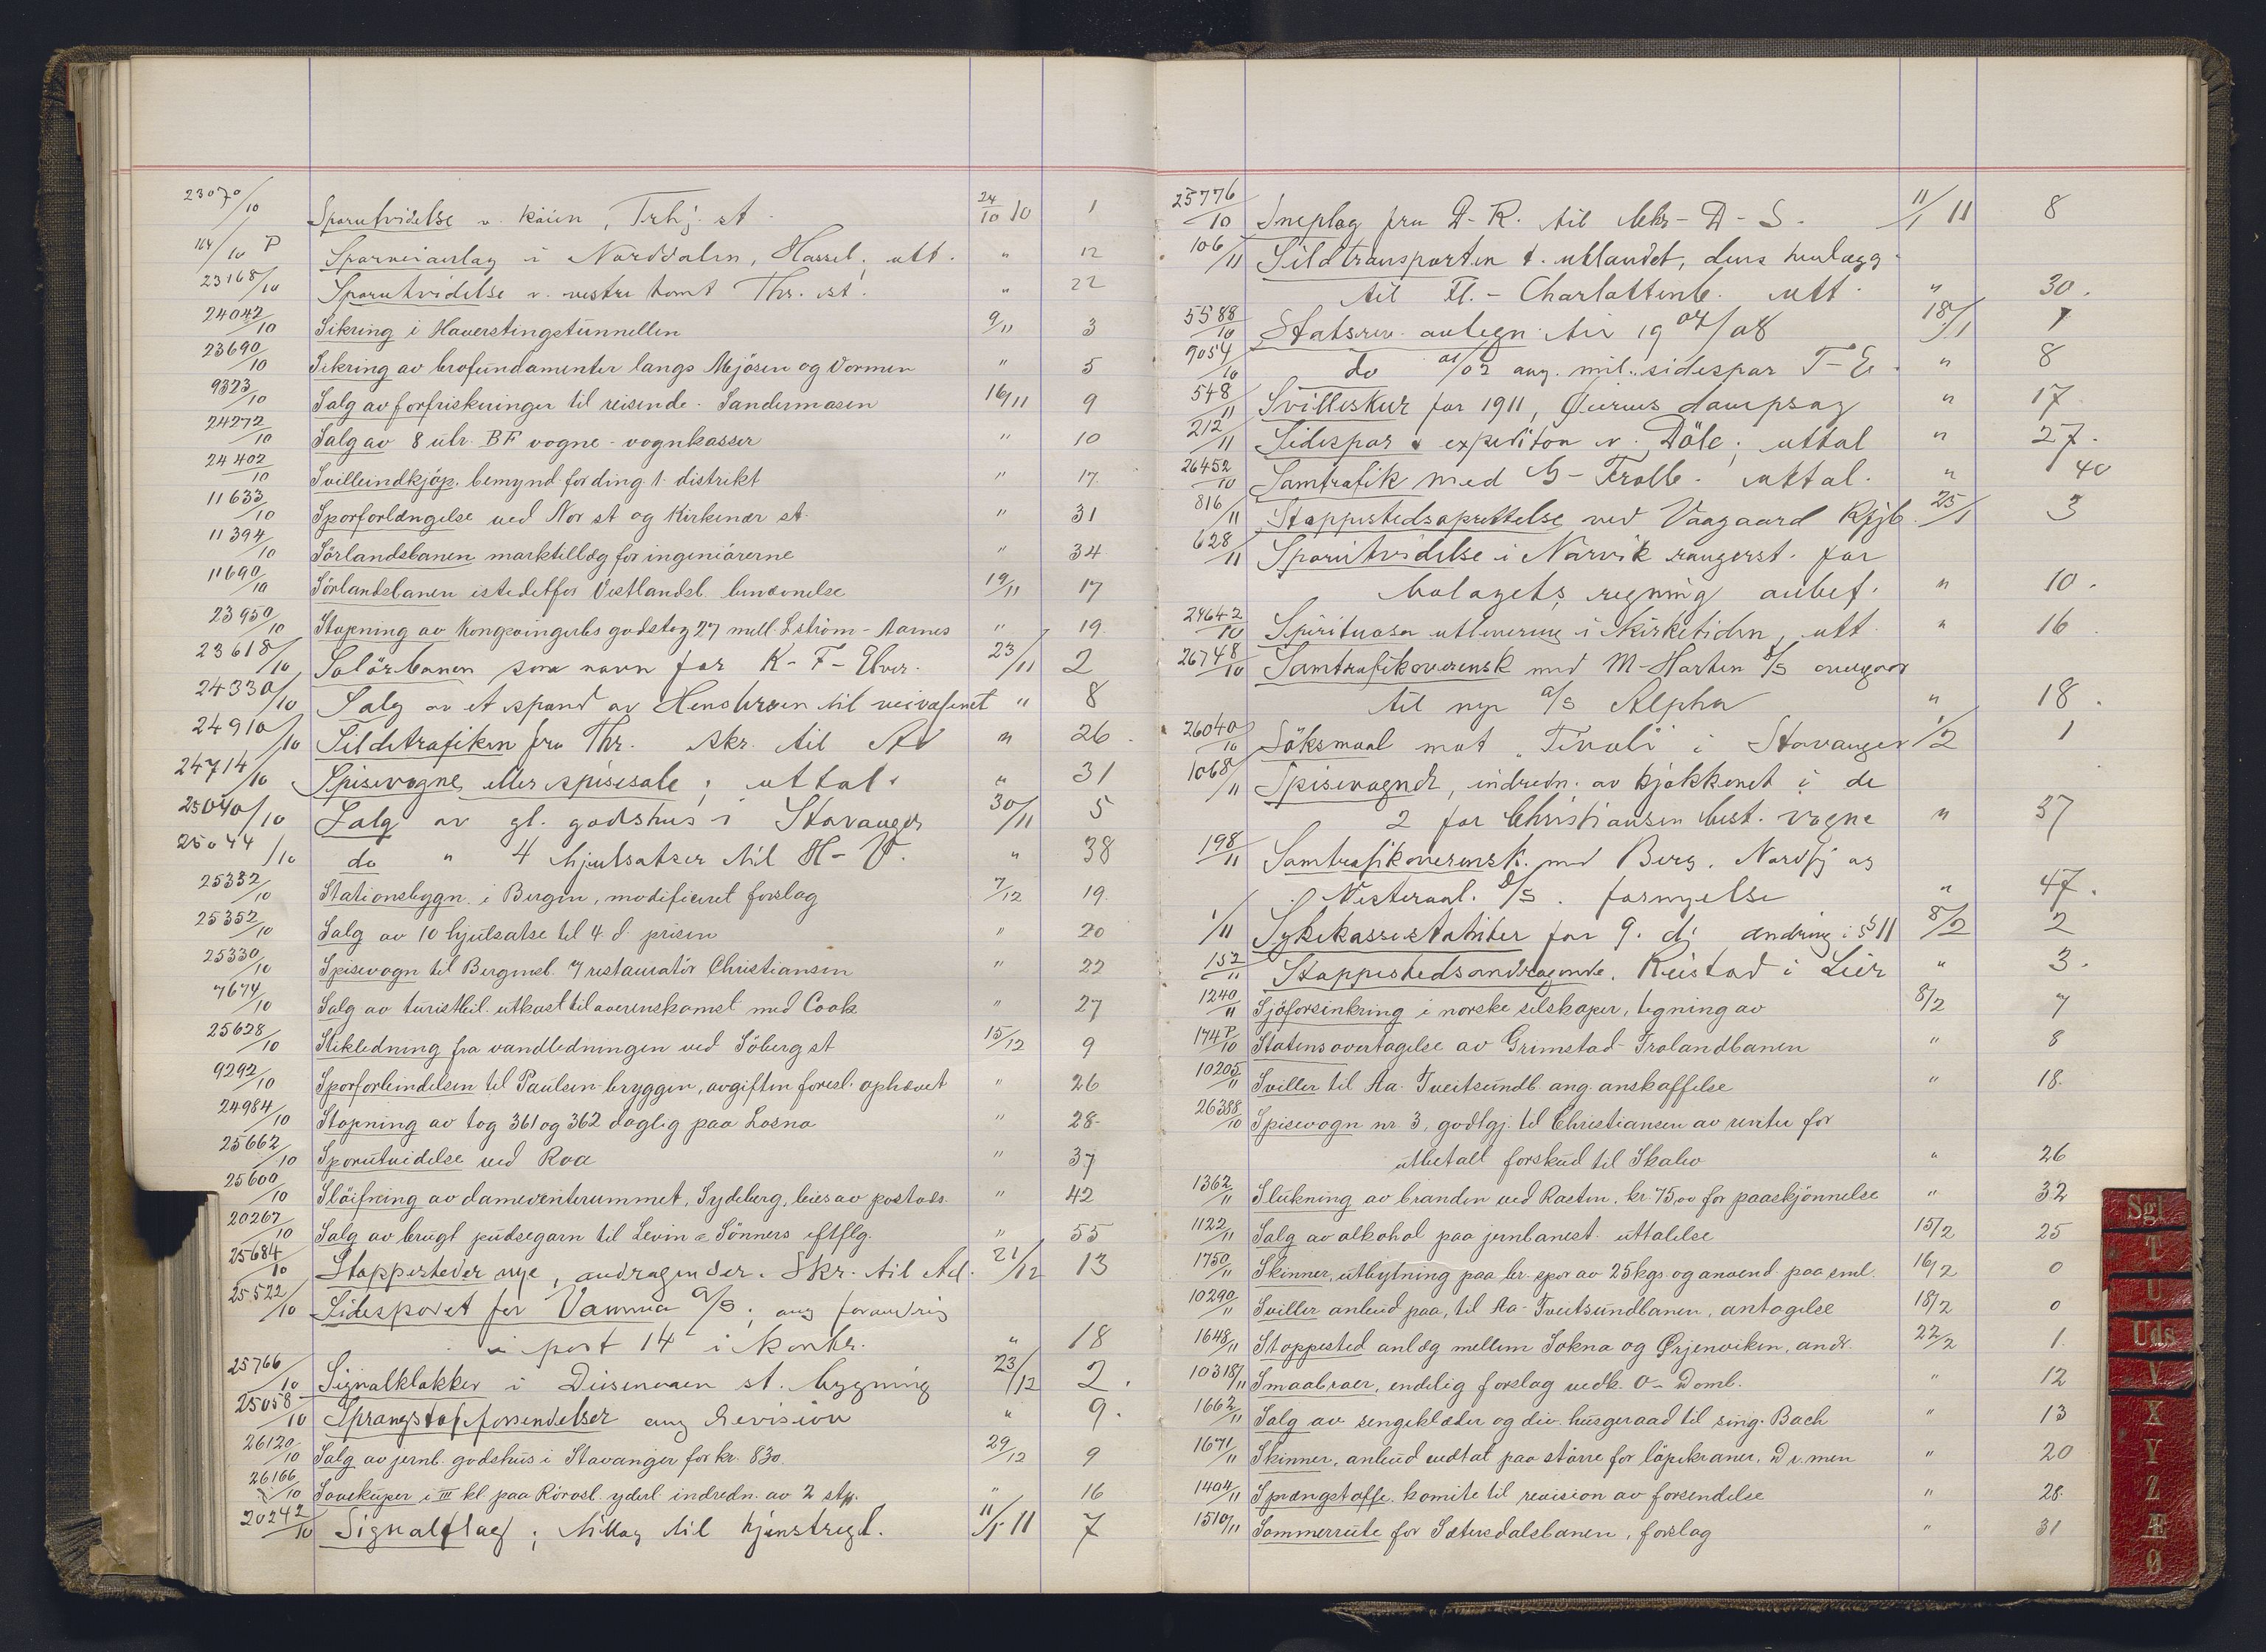 23070/10 Sporutvidelse v. kaien, Trhj. st. 24/10 10 1
164/10 P Sporveianlæg i Norddalen, Hassel; utt. " 12
23168/10 Sporutvidelse v. vestre tomt Thr. st. " 22
24042/10 Sikring i Haverstingstunnellen 9/11 3
23690/10 Sikring av brofundamenter langs Mjösen og Vormen " 5
9323/10 Salg av forfriskninger til reisende - Sandermosen 16/11 9
24272/10 Salg av 8 utr. BF vogne - vognkasser " 10
24402/10 Svilleindkjöp. bemynd for ding. 1. distrikt " 17
11633/10 Sporforlængelse ved Nor st og Kirkenær st. " 31
11394/10 Sörlandsbanen marktillæg for ingeniörerne " 34
11690/10 Sörlandsbanen istedetfor Vestlandsb. benævnelse 19/11 17
23950/10 Stopning av Kongsvingerbs godstog 27 mell. Lström - Aarnes " 19
23618/10 Solörbanen som navn for K-F-Elver. 23/11 2
24330/10 Salg av et spand av Hensbroen til veivæsenet " 8
24910/10 Sildetrafiken fra Thr. skr. til AD " 26
24714/10 Spisevogne eller spisesale; uttal. " 31
25040/10 Salg av gl. godshus i Stavanger 30/11 5
25044/10 do " 4 hjulsatser til H-V. " 38
25332/10 Stationsbygn. i Bergen, modificeret forslag 7/12 19
25352/10 Salg av 10 hjulsatse til 4. d. prisen " 20
25330/10 Spisevogn til Bergensb. restauratör Christiansen " 22
7674/10 Salg av turistbil. utkast til overenskomst med Cook " 27
25628/10 Stikledning fra vandledningen ved Söberg st 15/12 9
9292/10 Sporforbindelsen til Paulsen-bryggen, avgiften foresl. ophævet " 26
24984/10 Stopning av tog 361 og 362 daglig paa Losna " 28
25662/10 Sporutvidelse ved Roa " 37
25600/10 Slöifning av dameventerummet, Lysdeberg, leies av postvæs. " 42
20267/10 Salg av brugt pudsegarn til Levin & Sönners eftflg. " 55
25684/10 Stoppesteder nye, andragender. Skr. til Ad. 21/12 13
25522/10 Sidesporet for Vamma A/S; ang forandring
i post 14 i kontr. " 18
25766/10 Signalklokker i Disenaaen st. bygning 23/12 2
25058/10 Sprængstofforsendelser ang revision " 9
26120/10 Salg av jernb. godshus i Stavanger for kr. 830. 29/12 9
26166/10 Soveküper i III kl. paa Rörosb. yderl indredn. av 2 stk. " 16
20242/10 Signalflag; tillæg til tjenstregl. 11/1 11 7
25776/10 Sneplog fra D-R. til Chr-D-S. 11/1 11 8
106/11 Sildtransporten t. utlandet, dens henlægg.
til Fl. - Charlottenb. utt. " 30
5588/10 Statsrev. antegn. til 1907/08 18/1 1
9054/10 do 01/02 ang. mil. sidespor T-E. " 8
548/11 Svilleskur for 1911, Quirus dampsag " 17
212/11 Sidespor & expedition v. Döle; uttal " 27
26452/10 Samtrafik med G-Frolb. uttal. " 40
816/11 Stoppestedsoprettelse ved Vaagaard Rfjb. 25/1 3
628/11 Sporutvidelse i Narvik rangerst. for
bolagets regning anbef. " 10
24642/10 Spirituosa utlevering i kirketiden, utt. " 16
26748/10 Samtrafikoverensk med M-Horten D/S overgaar
til nye A/S Alpha " 18
26040/10 Söksmaal mot "Tivoli" i Stavanger 1/2 1
1068/11 Spisevogner, indredn. av kjøkkenet i de
2 for Christiansen best. vogne " 37
198/11 Samtrafikoverensk. med Berg. Nordfj og
Vesteraal. D/S. fornyelse " 47
1/11 Sykekassestatuter for 9. d; ændring i § 11 8/2 2
152/11 Stoppestedsandragende. Reistad i Lier " 3
1240/11 Sjöforsinkring i norske selskaper, tegning av 8/2 7
174P/10 Statens overtagelse av Grimstad-Frolandbanen " 8
10205/11 Sviller til Aa. Tveitsundb. ang. anskaffelse " 18
26388/10 Spisevogn nr 3, godtgj. til Christiansen av renter for
utbetalt forskud til Skabo " 26
1362/11 Slukning av branden ved Rasten. kr. 75,00 for paaskjönnelse " 32
1122/11 Salg av alkohol paa jernbanest. uttalelse 15/2 25
1750/11 Skinner, utbytning paa br. spor av 25 kgs. og anvend. paa sml. 16/2 0
10290/11 Sviller anbud paa, til Aa-Tveitsundbanen, antagelse 18/2 0
1648/11 Stoppested anlæg mellem Sokna og Ørjenviken, andr. 22/2 1
10318/11 Smaabroer, endelig forslag vedk. O-Domb. " 12
1662/11 Salg av sengeklæder og div. husgeraad til sing. Bach " 13
1671/11 Skinner, anbud vedtat paa större for löpekraner, Dr.men " 20
1404/11 Sprængstoffe. komite til revision av forsendelse " 28
1510/11 Sommerrute for Sætersdalsbanen, forslag " 31
Sgl
T
U
Uds
V
X
Y
Z
Æ
Ø